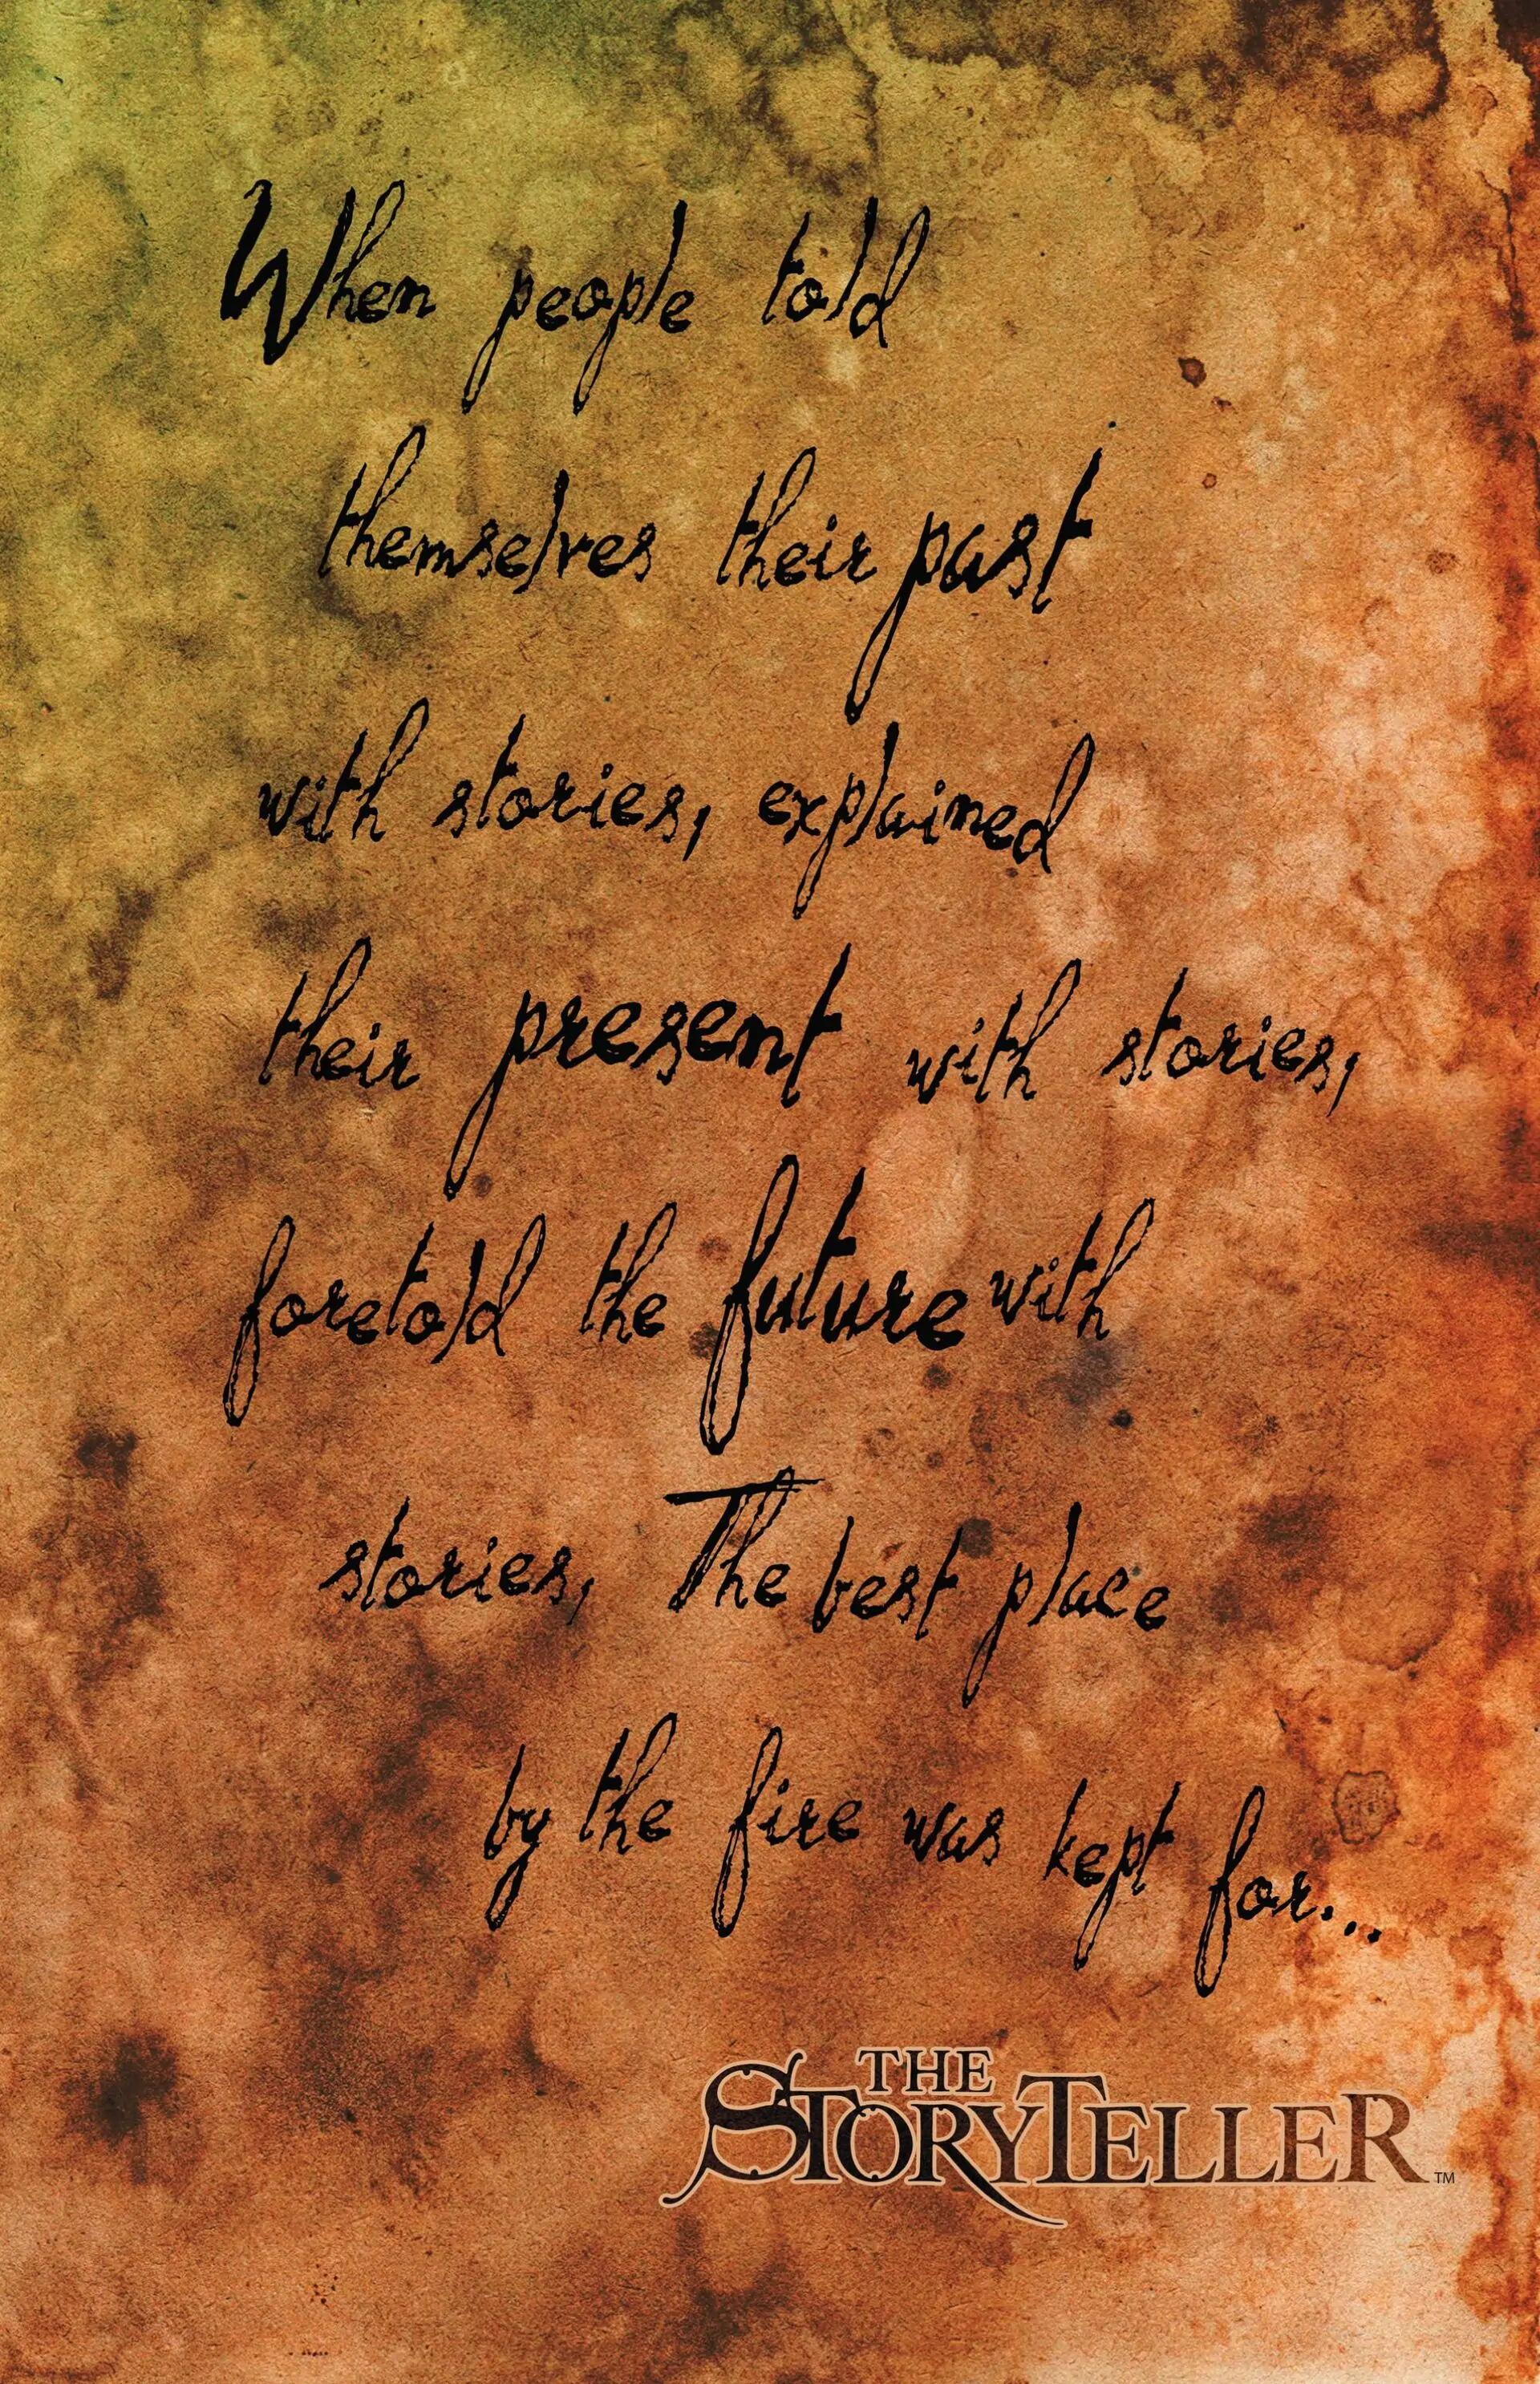 When people told
themselves their past
with stories, explained
their present with stories,
foretold the future with
stories, The best place
by the fire was kept for...
THE
STORYTELLER™